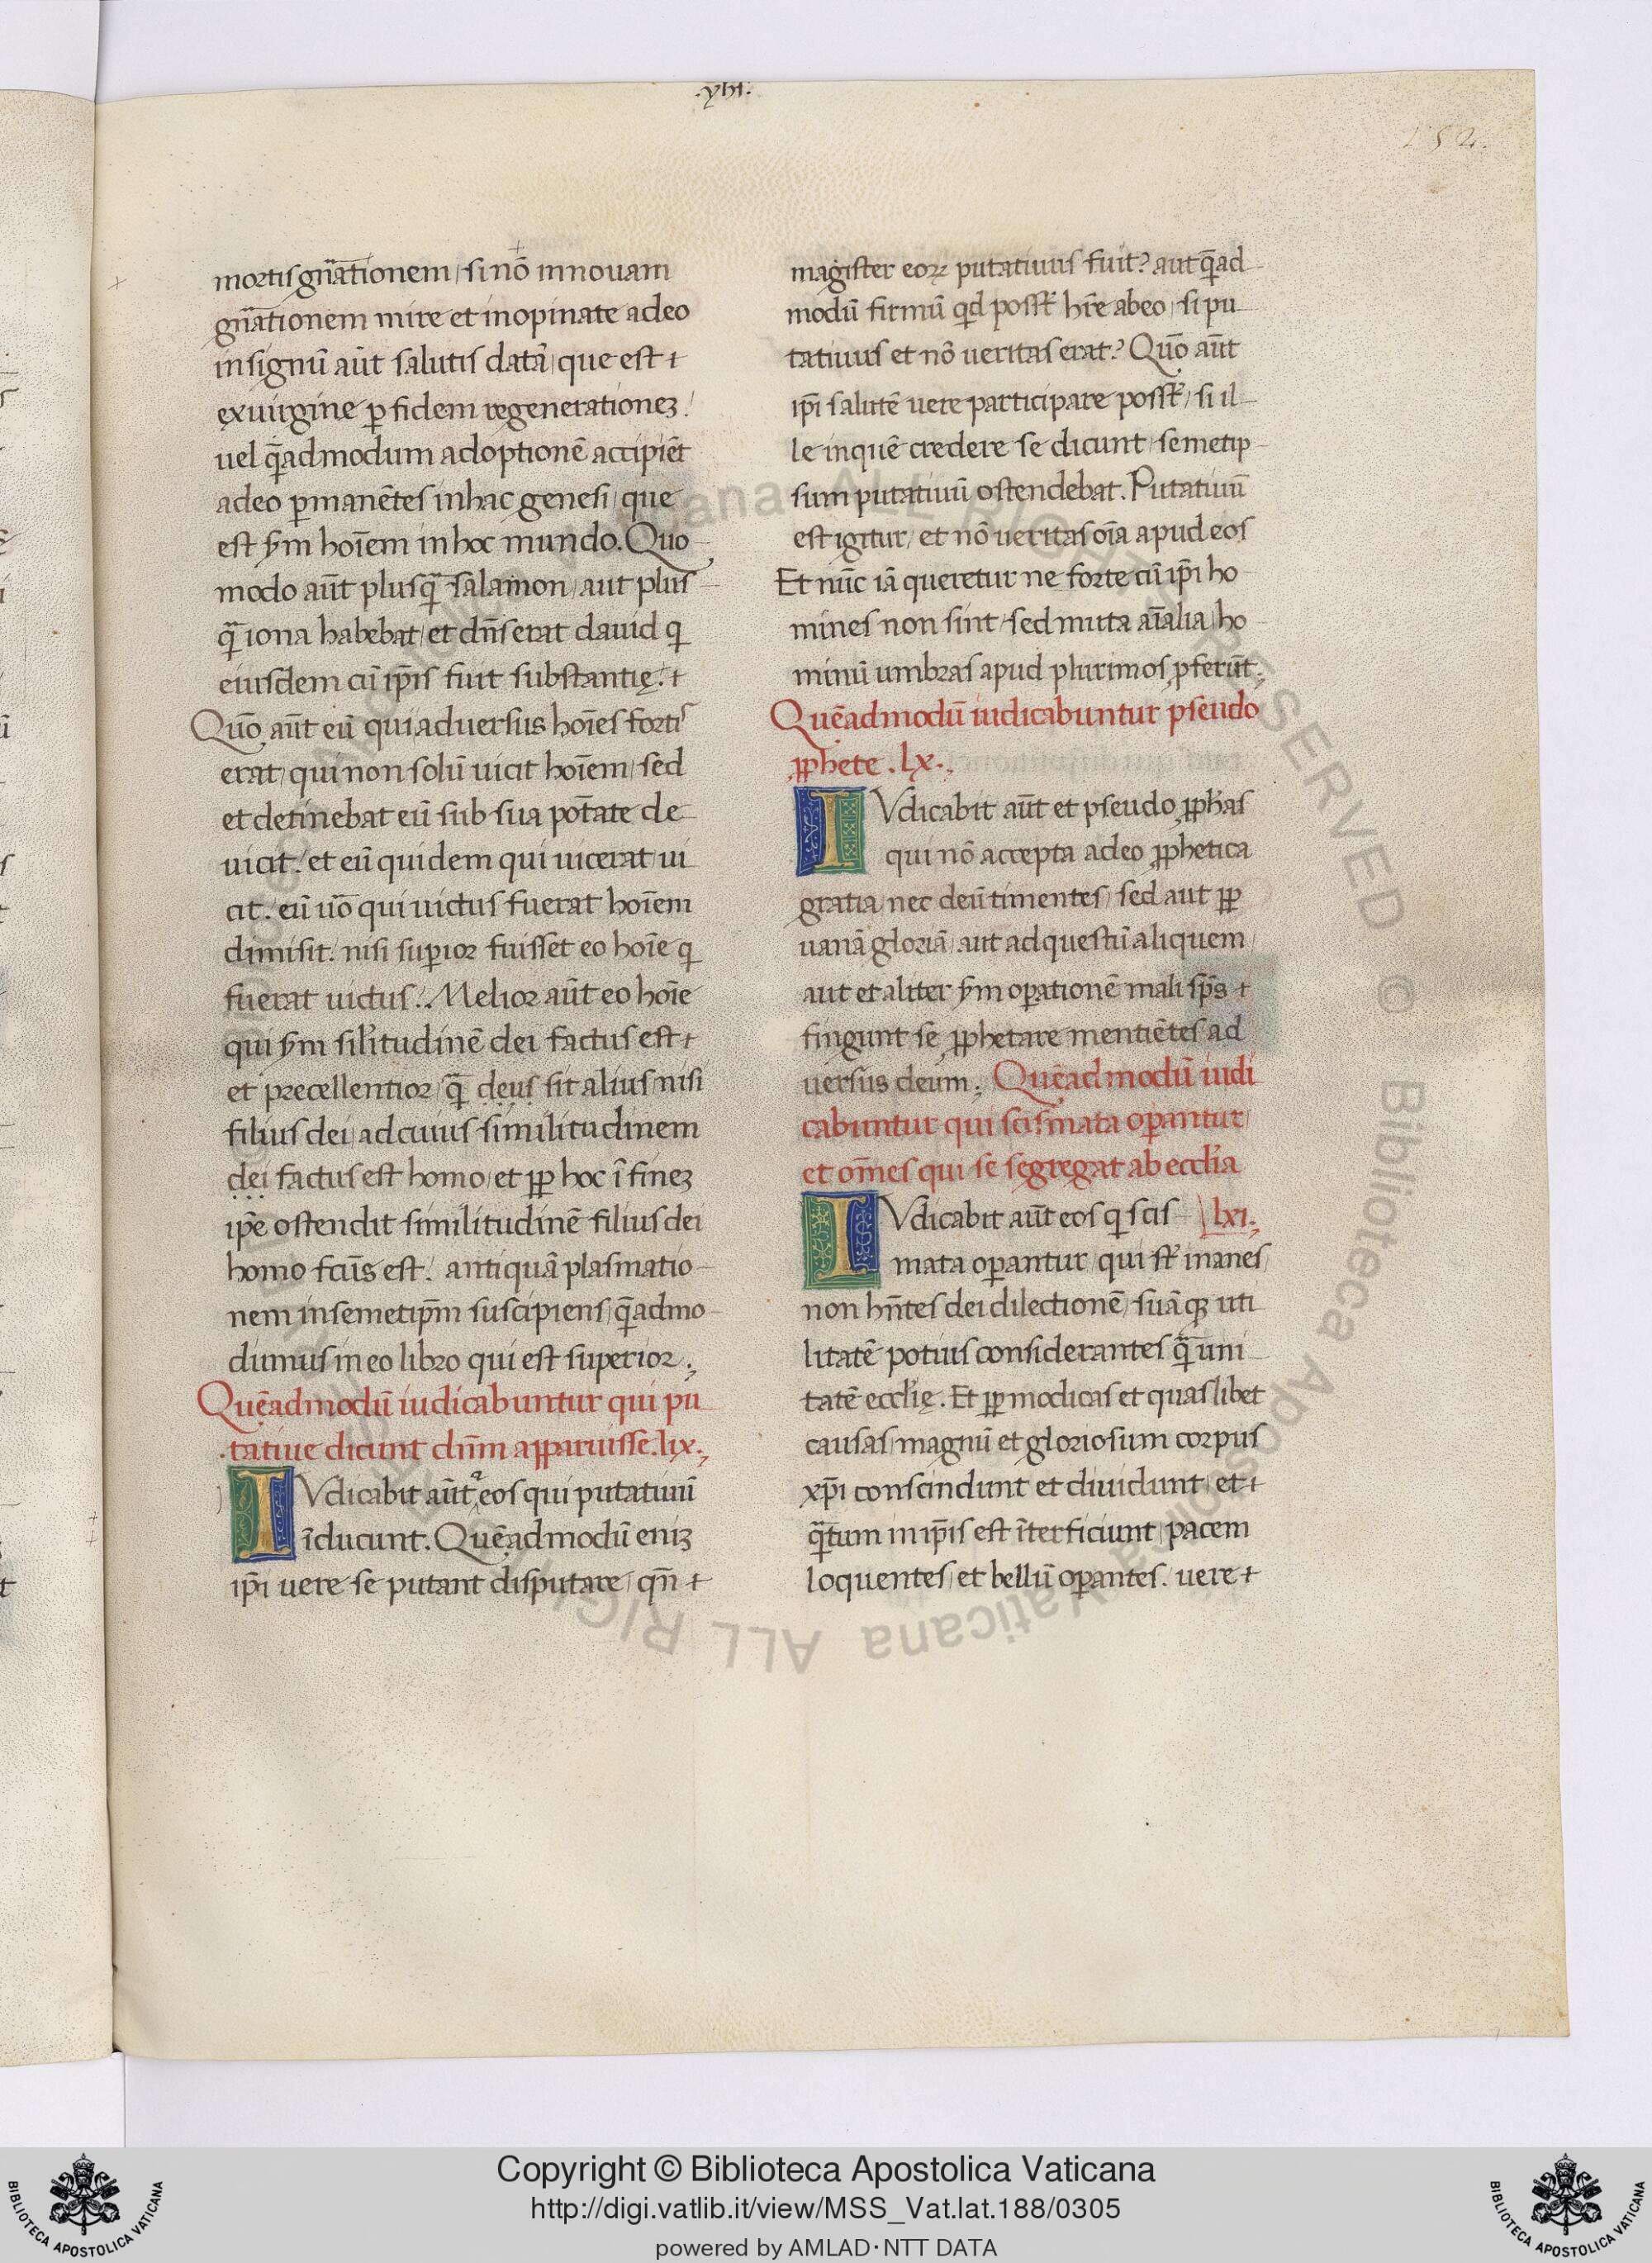 .yhı.
152.
mortis gn̄ationem, si nō in nouam
gn̄ationem mire et inopinate a deo
in signū aūt salutis datā, que est +
ex uirgine ꝑ fidem regenerationeꝫ.
uel q̄admodum adoptionē accipiēt
a deo ꝑmanētes in hac genesi, que
est ẏm hoīem in hoc mundo. Quo
modo aūt plusq̄ salamon, aut plus
q̄ iona habebat, et dn̄s erat dauid q
eiusdem cū ip̄is fuit substantię. +
Quō aūt eū qui aduersus hoīes fortis
erat, qui non solū uicit hoīem, sed
et detinebat eū sub sua pot̄ate de
uicit. et eū quidem qui uicerat, ui
cit. eū ūo qui uictus fuerat hoīem
dimisit. nisi suꝑior fuisset eo hoīe q
fuerat uictus. Melior aūt eo hoīe
qui ẏm sil'itudinē dei factus est +
et precellentior, q̄ deus sit alius nisi
filius dei, ad cuius similitudinem
dei factus est homo, et ꝓp hoc ī fineꝫ
ip̄e ostendit similitudinē filius dei
homo fcūs est. antiquā plasmatio-
nem in semetip̄m suscipiens, q̄admo-
dumus in eo libro qui est superior.;
Quēadmodū iudicabuntur qui pu
tatiue dicunt dn̄m apparuisse. lix.;
IVdicabit aūt eos qui putatiuū
īducunt. Quēadmodū eniꝫ
ip̄i uere se putant disputare, qn̄ +
magister eoꝝ putatiuus fuit? aut q̄ad-
modū firmū qd possт̄ hr̄e ab eo, si pu-
tatiuus et nō ueritas erat? Quō aūt
ip̄i salutē uere participare posst̄, si il-
le in quē credere se dicunt, semetip-
sum putatiuū ostendebat. Putatiuū
est igitur, et nō ueritas oīa apud eos
Et nūc iā queretur ne forte cū ip̄i ho-
mines non sint, sed muta aīalia, ho-
minū umbras apud plurimos ꝓferūt.;
Quēadmodū iudicabuntur pseudo
ꝓphete. lx.;
IVdicabit aūt et pseudo ꝓph'as
qui nō accepta a deo ꝓphetica
gratia, nec deū timentes, sed aut ꝓp
uanā gloriā, aut ad questū aliquem,
aut et aliter ẏm oꝑationē mali sp̄s +
fingunt se ꝓphetare mentiētes ad
uersus deum.; Quēadmodū iudi
cabuntur qui scismata oꝑantur,
et om̄es qui se segregāt ab eccl'ia
IVdicabit aūt eos q scis- lxı.;
mata oꝑantur, qui st̄ inanes,
non hn̄tes dei dilectionē, suāqꝫ uti
litatē potius considerantes q̄ uni-
tatē eccl'ię. Et ꝓp modicas et quaslibet
causas, magnū et gloriosum corpus
xp̄i conscindunt et diuidunt, et +
q̄tum in ip̄is est īterficiunt, pacem
loquentes, et bellū oꝑantes. uere +
Copyright © Biblioteca Apostolica Vaticana
http://digi.vatlib.it/view/MSS_Vat.lat.188/0305
powered by AMLAD·NTT DATA